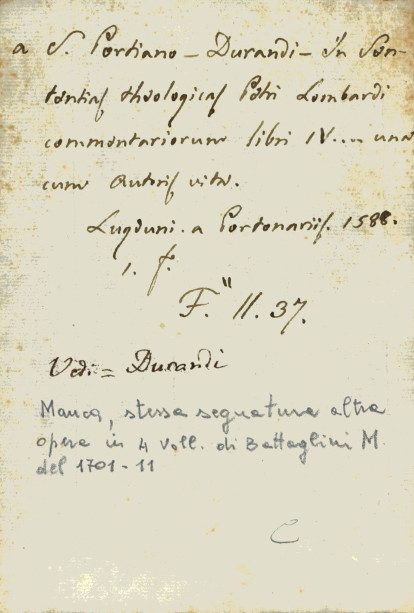 a S. Portiano - Durandi - In Sen-
tentias theologicas Petri Lombardi
commentariorum libri IV.... una
cum Autoris vita.
Lugduni. a Portonariis. 1588.
1. f.
F." II. 37.
Vedi = Durandi
Manca, stessa segnatura altra
opera in 4 voll. di Battaglini M.
del 1701-11
C